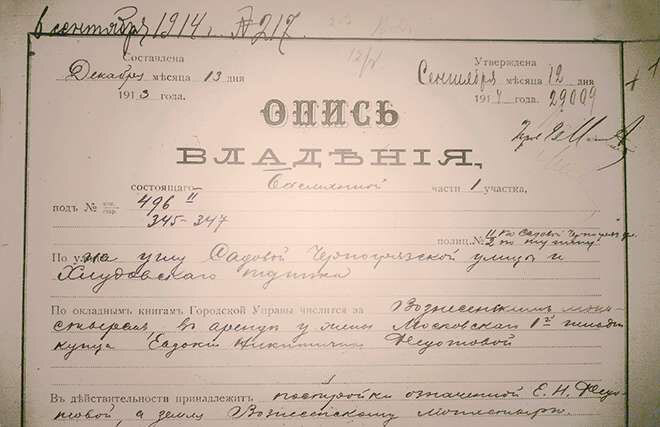 6 сентября 1914 г. № 217.
Составлена
Декабря мѣсяца 13 дня
1913 года.
Утверждена
Сентября мѣсяца 12 дня
1914 года. 29009
ОПИСЬ
ВЛАДѢНІЯ,
состоящаго Басманной части 1 участка,
подъ № нов. стар. 496 II
345-347
полиц. № 11 по Садовой
2 по тупику
По на углу Садовой Черногрязской улицы и
Хлудовскаго тупика
По окладнымъ книгамъ Городской Управы числится за Вознесенскимъ мона-
стыремъ въ арендѣ у жены Московскаго 1й гильдіи
купца Евдокіи Никитичны Федотовой
Въ дѣйствительности принадлежитъ постройки означенной Е. Н. Федо-
товой, а земля Вознесенскому монастырю.